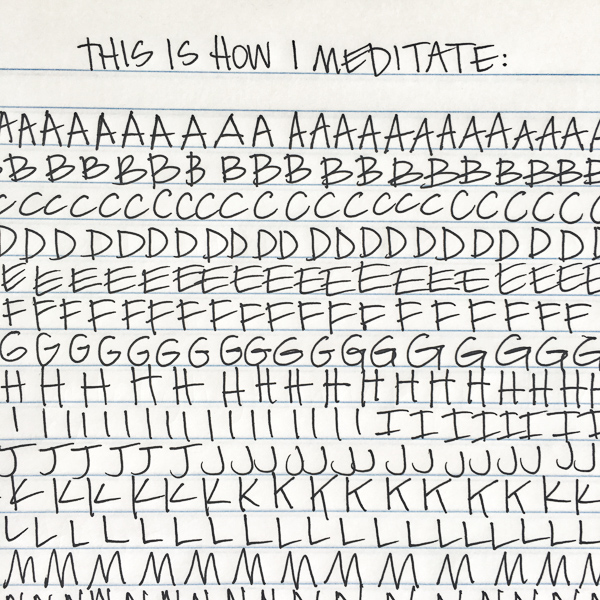 THIS IS HOW I MEDITATE:
AAAAAAAAAAAAAAAAAAAAAAA
BBBBBBBBBBBBBBBBBBB
CCCCCCCCCCCCCCCCCCCCCCC
DDDDDDDDDDDDDDDDDDDDDD
EEEEEEEEEEEEEEEEEEE
FFFFFFFFFFFFFFFFFFF
GGGGGGGGGGGGGGGGGG
HHHHHHHHHHHHHHHHH
IIIIIIIIIIIIIIIIIIIII
JJJJJJJJJJJJJJJJJJJJ
KKKKKKKKKKKKKKKK
LLLLLLLLLLLLLLLLLL
MMMMMMMMMMMMM